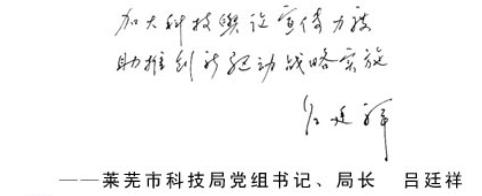 加大科技舆论宣传力度
助推创新驱动战略实施
吕廷祥
——莱芜市科技局党组书记、局长 吕廷祥